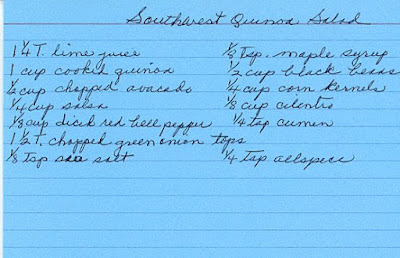 Southwest Quinoa Salad
1 1/4 T. lime juice 1/2 Tsp. maple syrup
1 cup cooked quinoa 1/2 cup black beans
1/2 cup chopped avocado 1/4 cup corn kernels
1/4 cup salsa 1/8 cup cilantro
1/3 cup diced red bell pepper 1/4 tsp cumin
1 1/2 T. chopped green onion tops
1/8 tsp sea salt 1/4 tsp allspice